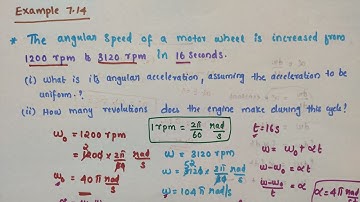 Example 7.14
* The angular speed of a motor wheel is increased from
1200 rpm to 3120 rpm in 16 seconds.
(i) What is its angular acceleration, assuming the acceleration to
be uniform?
(ii) How many revolutions does the engine make during this cycle?
1 rpm = 2π/60 rad/s
t = 16s
ω₀ = 1200 rpm
ω = 3120 rpm
ω = ω₀ + αt
= 1200 × 2π/60 rad/s
= 3120 × 2π/60 rad/s
ω - ω₀ = αt
ω₀ = 40π rad/s
ω = 104π rad/s
ω-ω₀/t = α
α = 4π rad